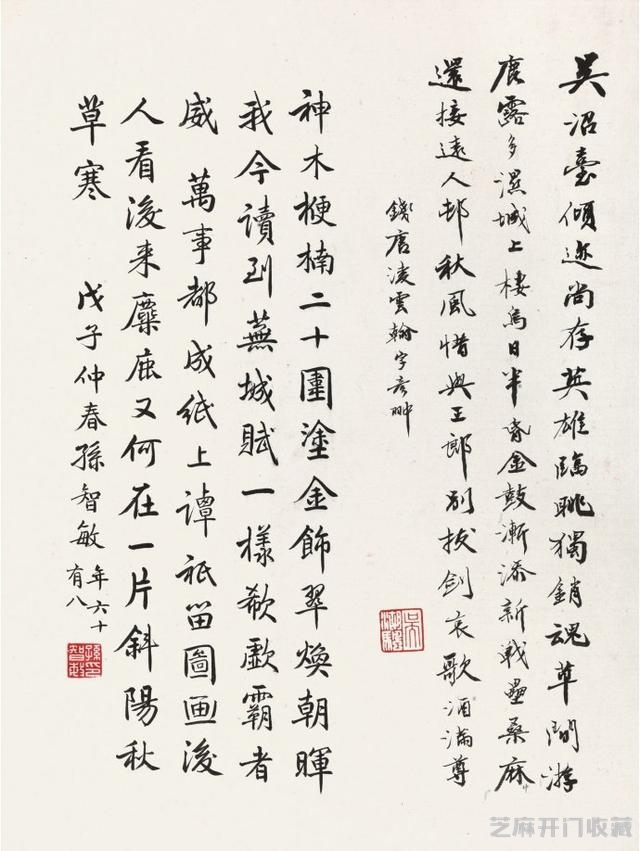 吳沼臺傾迹尚存英雄臨眺獨銷魂草間游
鹿露多濕城上棲烏日半昏金鼓漸添新戰壘桑麻
還接遠人邨秋風惜與王郎別拔劍哀歌酒滿尊
錢唐淩雲翰字彥翀
神木梗楠二十圍塗金飾翠煥朝暉
我今讀到蕪城賦一樣欷歔霸者
威 萬事都成紙上譚祇留圖画後
人看後来麋鹿又何在一片斜陽秋
草寒 戊子仲春孫智敏年六十
有八
孫智敏
芝麻开门收藏